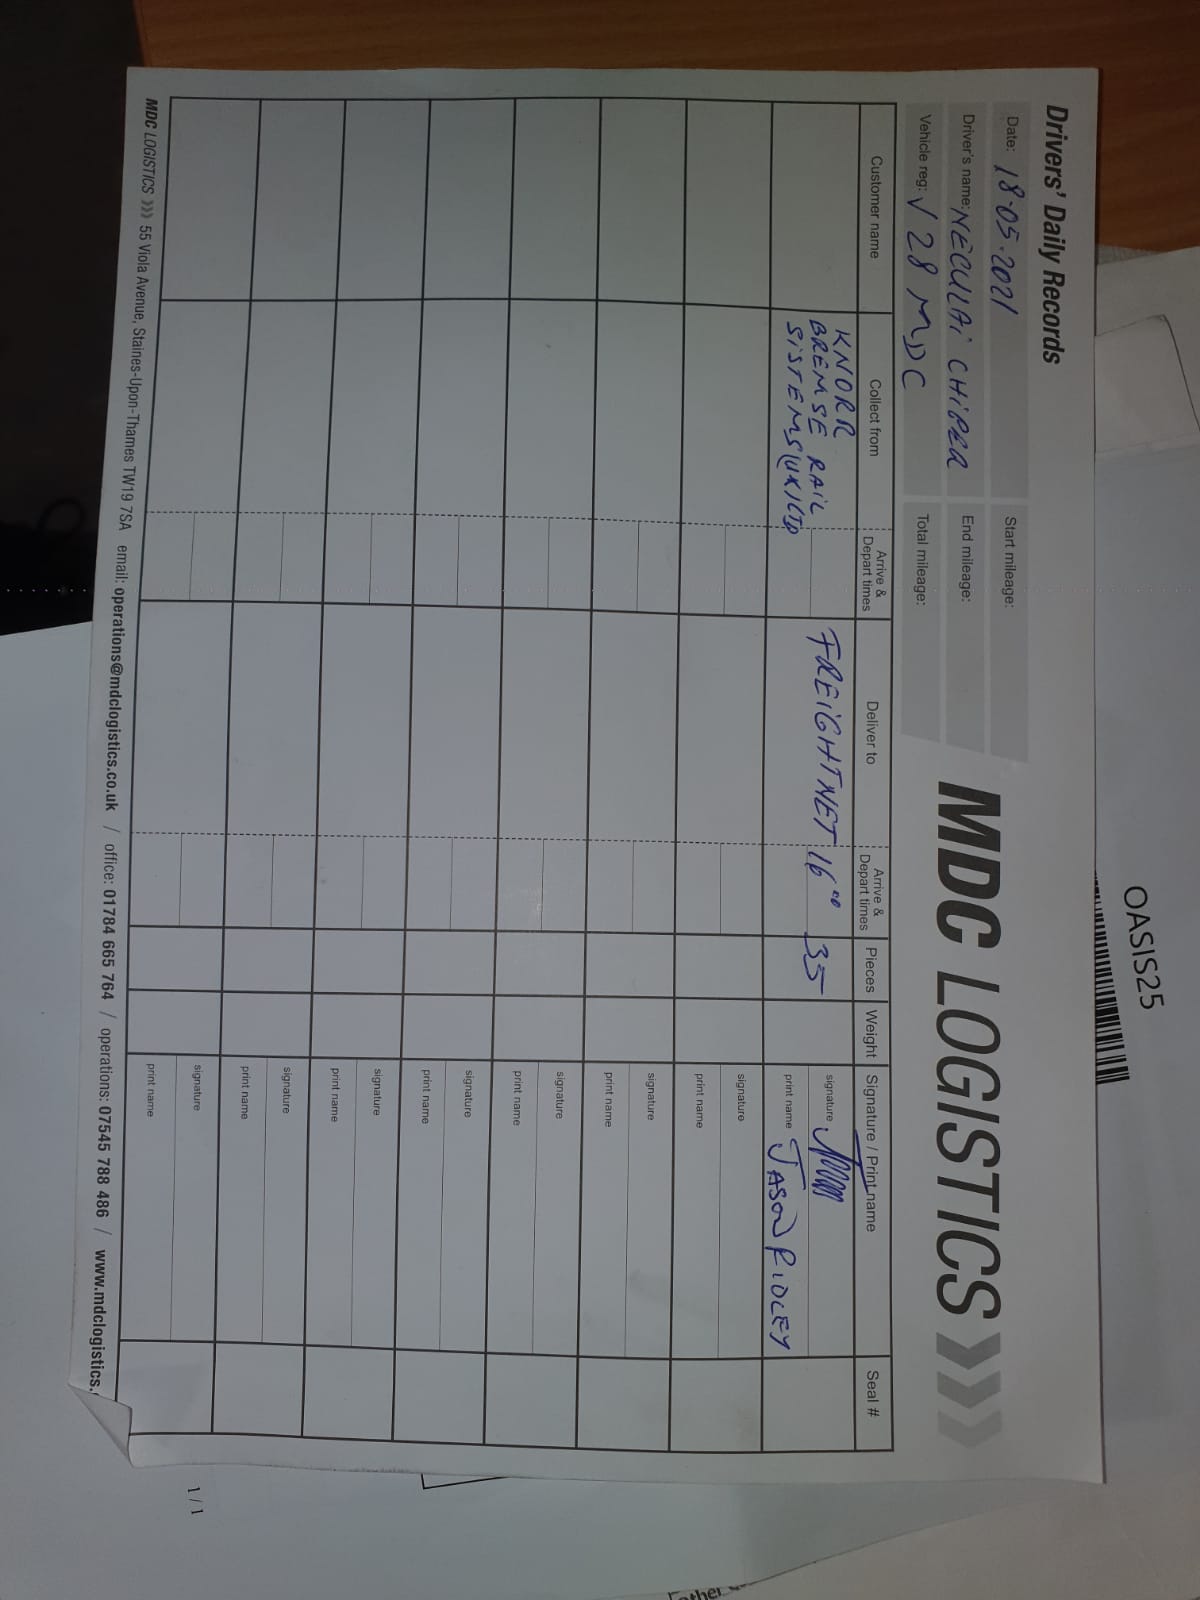 Drivers' Daily Records
Date: 18.05.2021
Start mileage:
Driver's name: NECULAi CHiPER
End mileage:
Vehicle reg: V28 MDC
Total mileage:
MDC LOGISTICS
Customer name
Collect from
Arrive &
Depart times
Deliver to
Arrive &
Depart times
Pieces
Weight
Signature / Print name
Seal #
KNORR
BREMSE RAiL
SiSTEMS (UK) LTD
FREiGHTNET
16 00
35
signature
print name JASON RIDLEY
signature
print name
signature
print name
signature
print name
signature
print name
signature
print name
signature
print name
signature
print name
MDC LOGISTICS 55 Viola Avenue, Staines-Upon-Thames TW19 7SA email: operations@mdclogistics.co.uk / office: 01784 665 764 / operations: 07545 788 486 / www.mdclogistics.
OASIS25
1 / 1